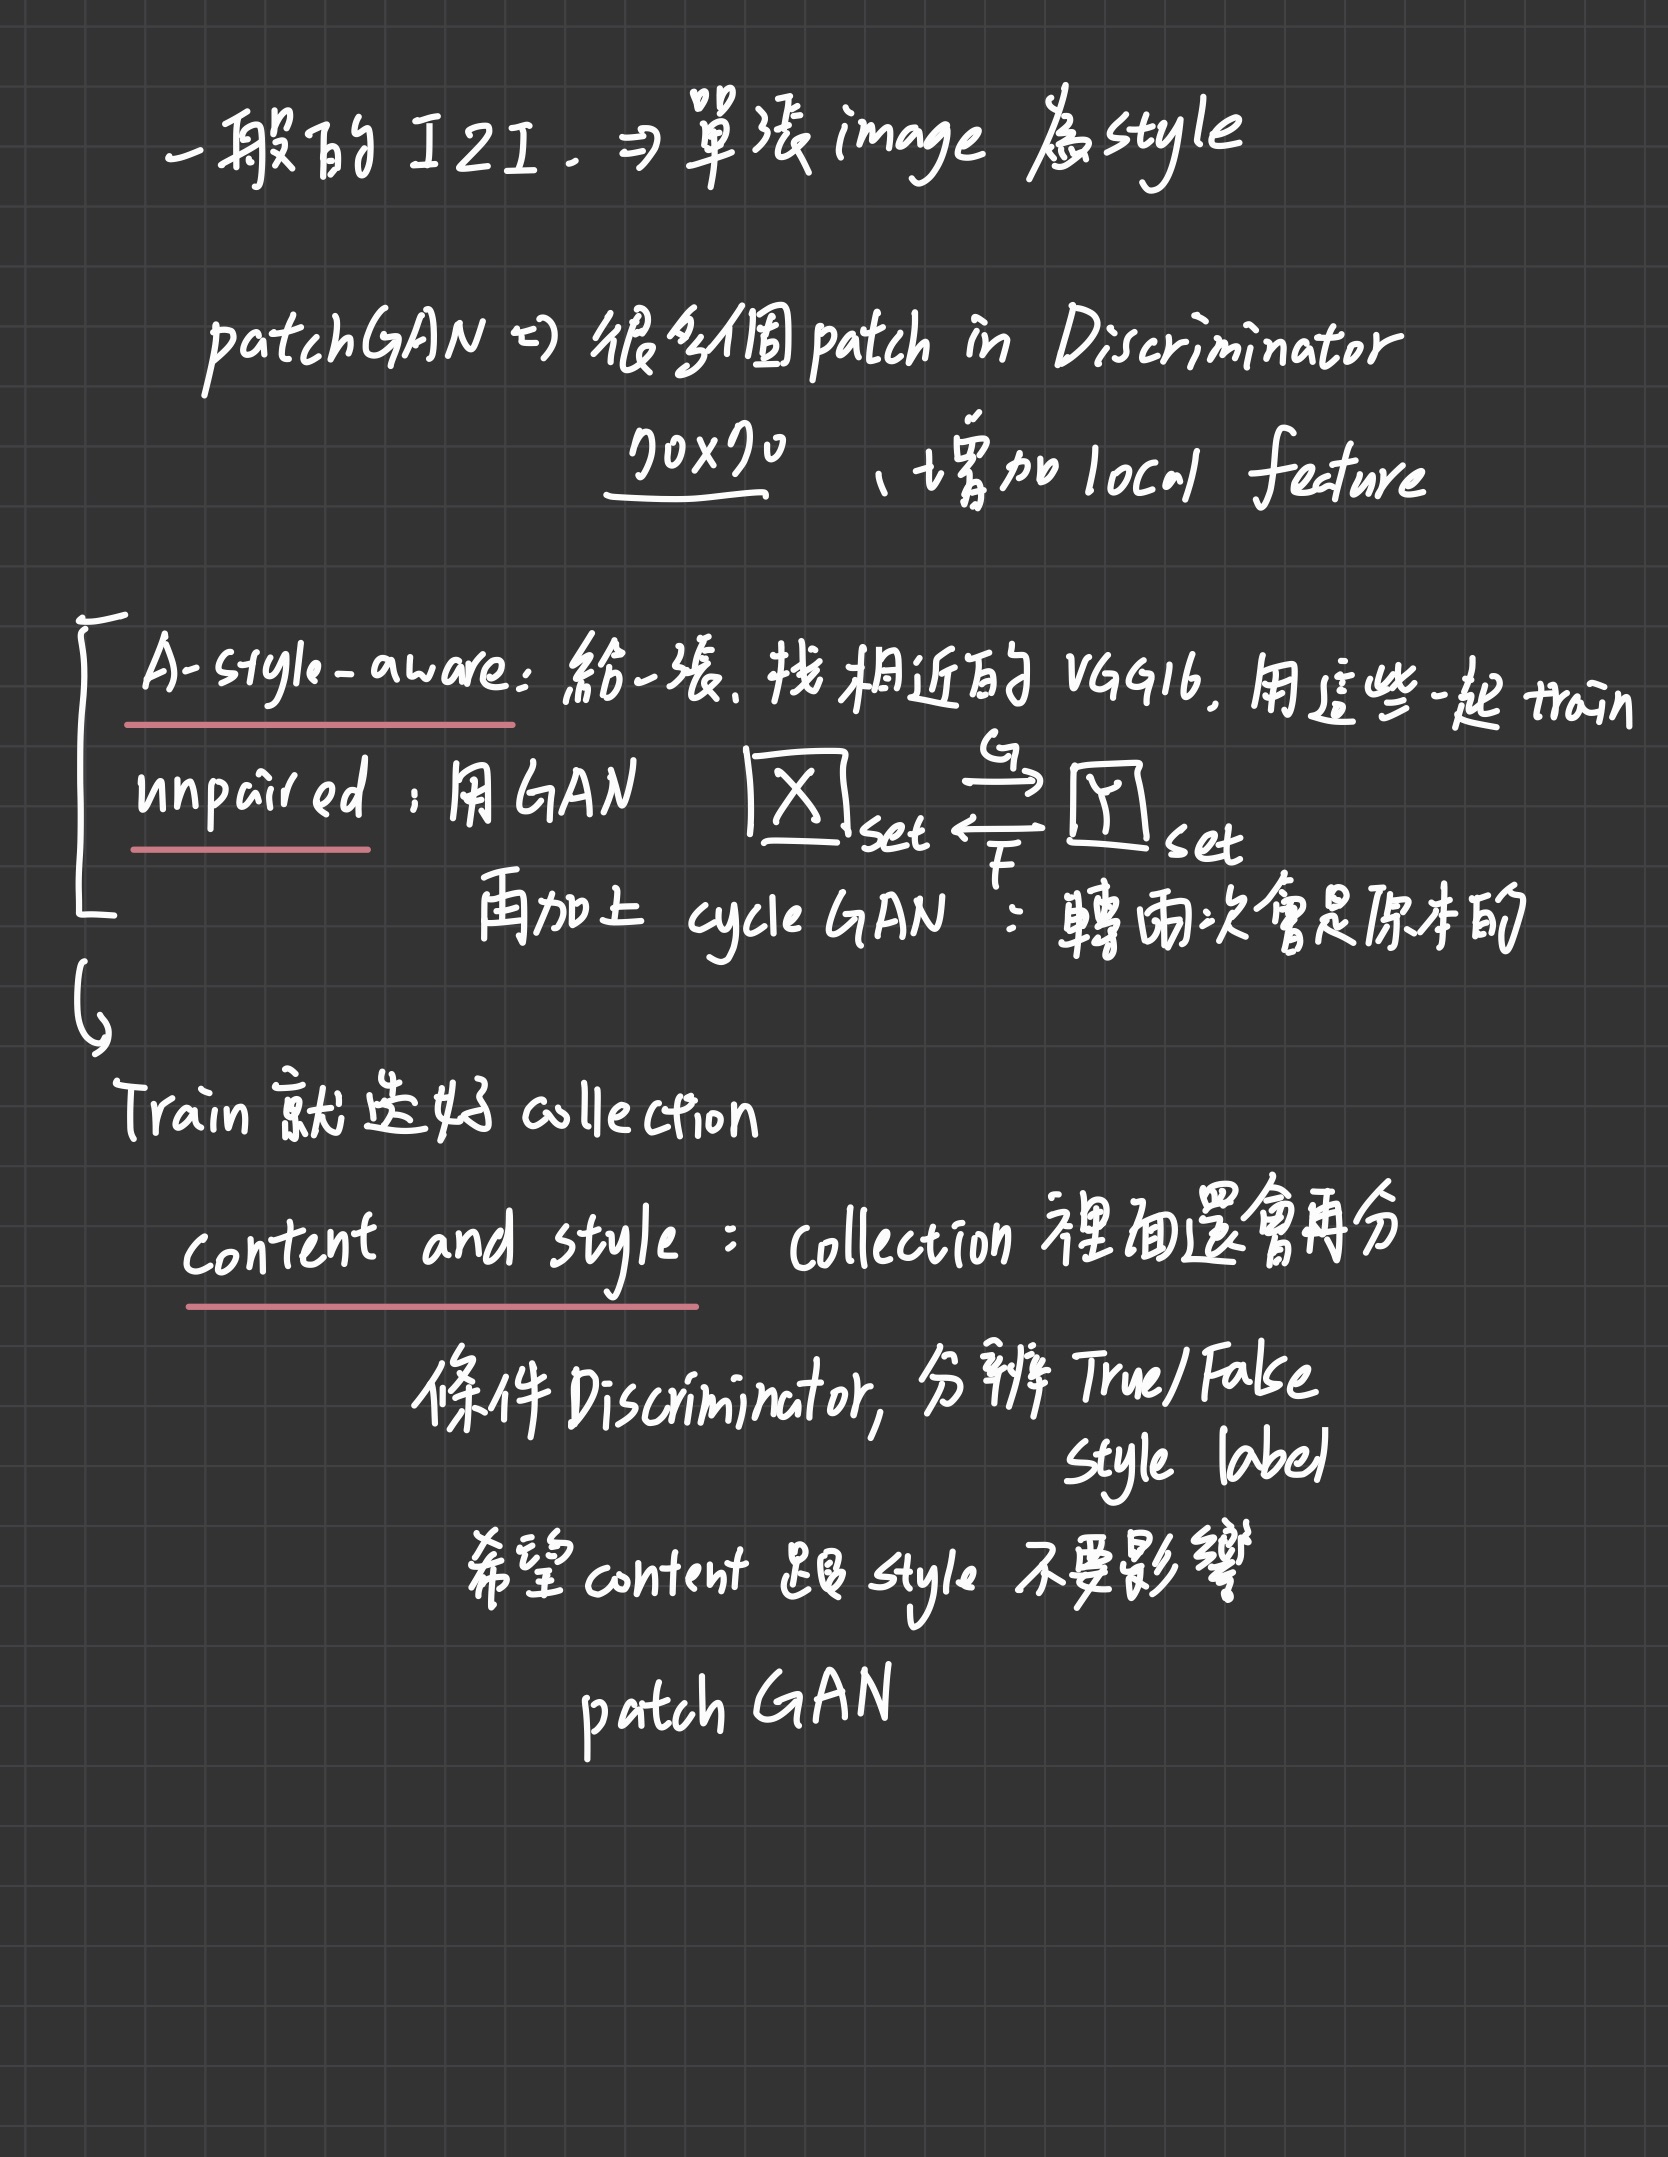 一般的 I2I. ⇒ 單張 image 為 style
patchGAN ⇒ 很多個 patch in Discriminator
70x70 、增加 local feature
A-style-aware: 給一張、找相近的 VGG16, 用這些一起 train
unpaired : 用 GAN X set G F Y set
再加上 cycle GAN : 轉兩次會是原本的
Train 就選好 collection
content and style : Collection 裡面還會再分
條件 Discriminator, 分辨 True/False
style label
希望 content 跟 style 不要影響
patch GAN